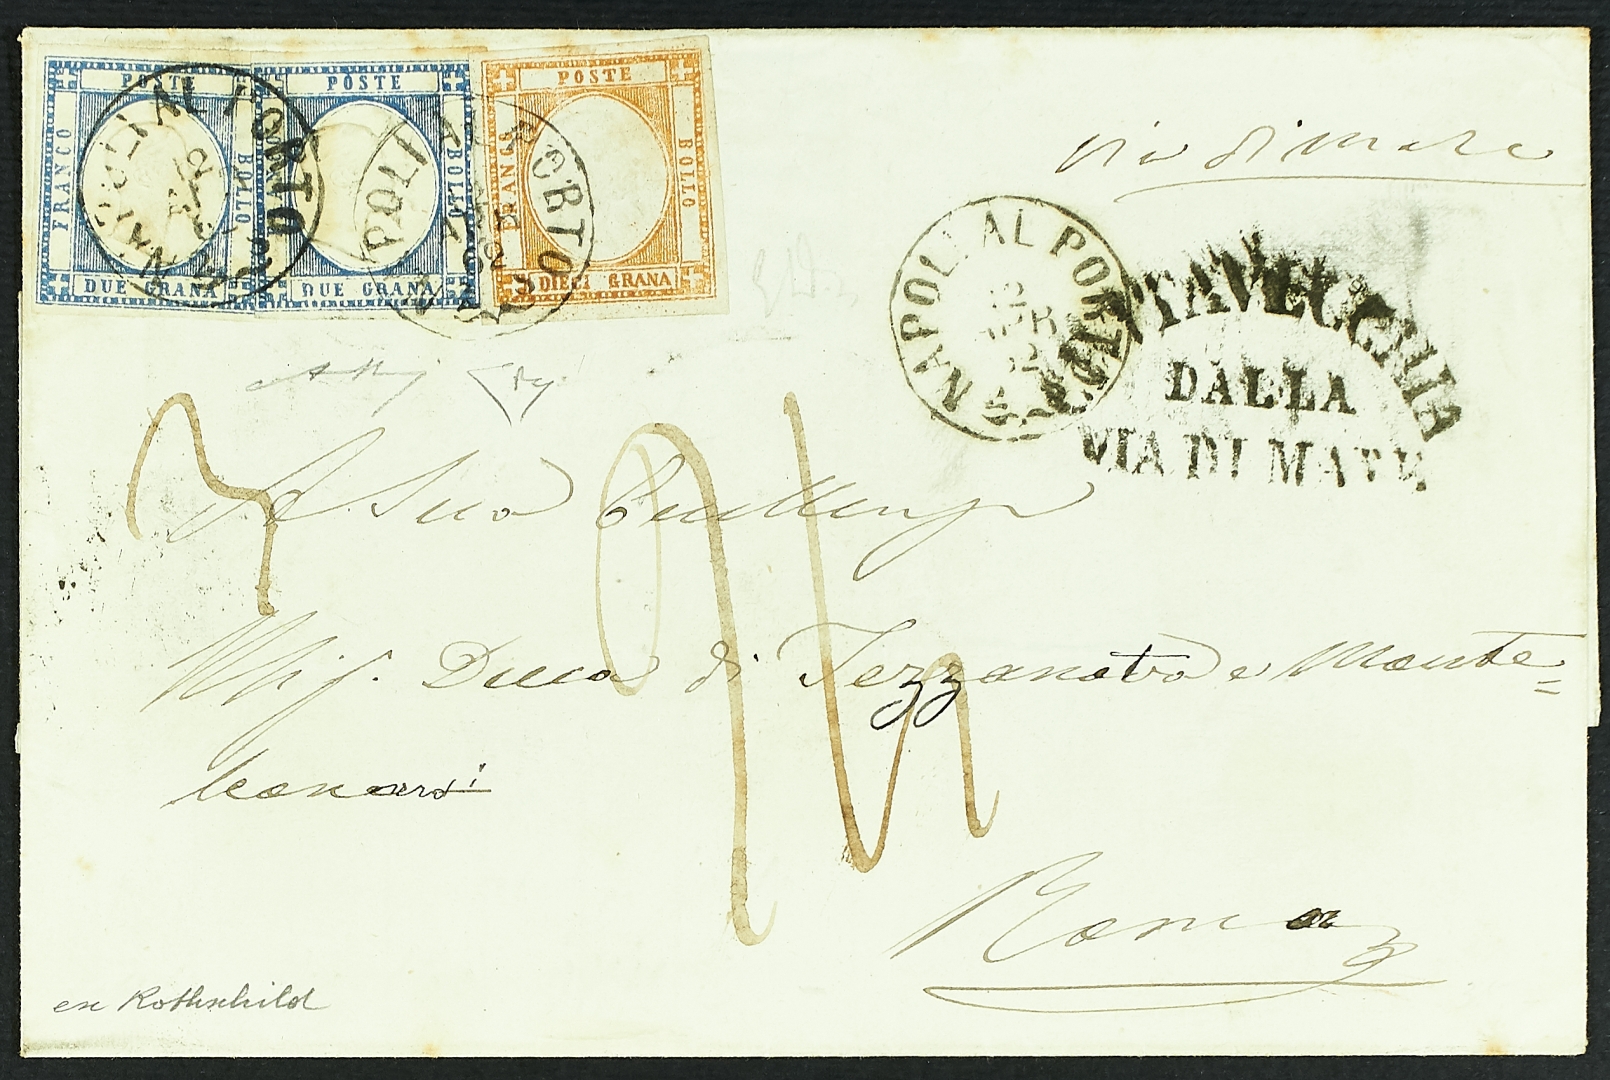 POSTE
FRANCO
BOLLO
DUE GRANA
POSTE
BOLLO
DUE GRANA
POSTE
FRANCO
BOLLO
DIECI GRANA
NAPOLI AL PORTO
NAPOLI AL PORTO
via di mare
NAPOLI AL PORTO
CIVITAVECCHIA
DALLA
VIA DI MARE
A Sua
Duca di Tezzano e Monte=
Roma
ex Rothschild